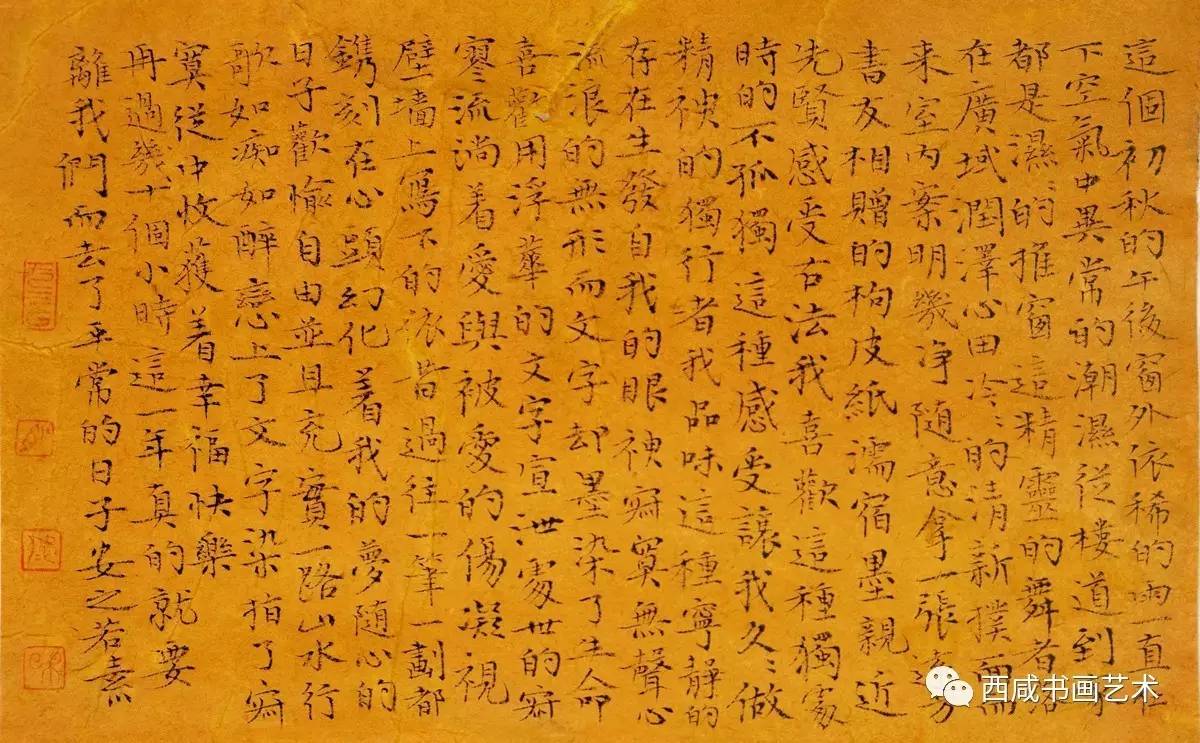 這個初秋的午後窗外依稀的雨一直在
下空氣中異常的潮濕從樓道到
都是濕〻的推窗這精靈的舞者落
在廣域潤澤心田冷〻的清新撲面而
来室内案明幾净隨意拿一張遠方
書友相贈的枸皮紙濡宿墨親近
先賢感受古法我喜歡這種獨處
時的不孤獨這種感受讓我久〻做
精神的獨行者我品味這種寧靜的
存在生發自我的眼神寂寞無聲心
流浪的無形而文字却墨染了生命
喜歡用浮華的文字宣泄處世的寂
寥流淌着愛與被愛的傷凝視
壁墙上寫下的依昔過往一筆一劃都
鐫刻在心頭幻化着我的夢隨心的
日子歡愉自由並且充實一路山水行
歌如痴如醉戀上了文字染指了寂
寞從中收獲着幸福快樂
再過幾十個小時這一年真的就要
離我們而去了平常的日子安之若素
西咸书画艺术